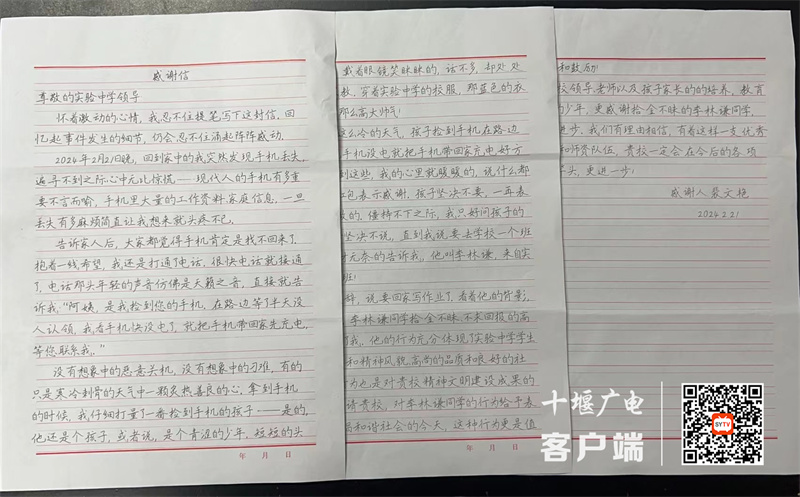 感谢信
尊敬的实验中学领导
怀着激动的心情，我忍不住提笔写下这封信，回
忆起事件发生的细节，仍会忍不住涌起阵阵感动。
2024年2月21日晚，回到家中的我突然发现手机丢失，
遍寻不到之际心中无比惊慌——现代人的手机有多重
要不言而喻，手机里大量的工作资料家庭信息，一旦
丢失有多麻烦简直让我想来就头疼不已。
告诉家人后，大家都觉得手机肯定是找不回来了，
抱着一线希望，我还是打通了电话，很快电话就接通
了，电话那头年轻的声音仿佛是天籁之音，直接就告
诉我，“阿姨，是我捡到您的手机，在路边等了半天没
人认领，我看手机快没电了，就把手机带回家先充电，
等你联系我。”
没有想象中的恶意关机，没有想象中的刁难，有的
只是寒冷刺骨的天气中一颗炙热善良的心，拿到手机
的时候，我仔细打量了一番捡到手机的孩子——是的，
他还是个孩子，或者说，是个青涩的少年，短短的头
年 月 日
戴着眼镜笑眯眯的，话不多，却处处
教，穿着实验中学的校服，那蓝色的衣
那么高大帅气！
这么冷的天气，孩子捡到手机在路边
手机没电就把手机带回家充电好方
到这些，我的心里就暖暖的，说什么都
红包表示感谢，孩子坚决不要，一再表
的，僵持不下之际，我只好问孩子的
坚决不说，直到我说要去学校一个班
才无奈的告诉我，他叫李林谦，来自实
班！
，说要回家写作业了，看着他的背影，
李林谦同学拾金不昧，不求回报的高
了我，他的行为充分体现了实验中学学生
和精神风貌，高尚的品质和良好的社
为也是对贵校精神文明建设成果的
请贵校，对李林谦同学的行为给予表
和谐社会的今天，这种行为更是值
年 月 日
和鼓励！
校领导老师以及孩子家长的的培养，教育
的少年，更感谢拾金不昧的李林谦同学，
进步，我们有理由相信，有着这样一支优秀
和师资队伍，贵校一定会在今后的各项
头，更进一步！
感谢人
2024.2.21
十堰广电
客户端
SYTV